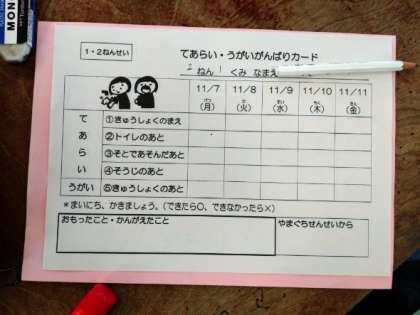 MON
1・2ねんせい
てあらい・うがいがんばりカード
1 ねん 1 くみ なまえ
11/7 11/8 11/9 11/10 11/11
(月) (火) (水) (木) (金)
てあらい
①きゅうしょくのまえ
②トイレのあと
③そとであそんだあと
④そうじのあと
うがい ⑤きゅうしょくのあと
*まいにち、かきましょう。(できたら○、できなかったら×)
おもったこと・かんがえたこと
やまぐちせんせいから